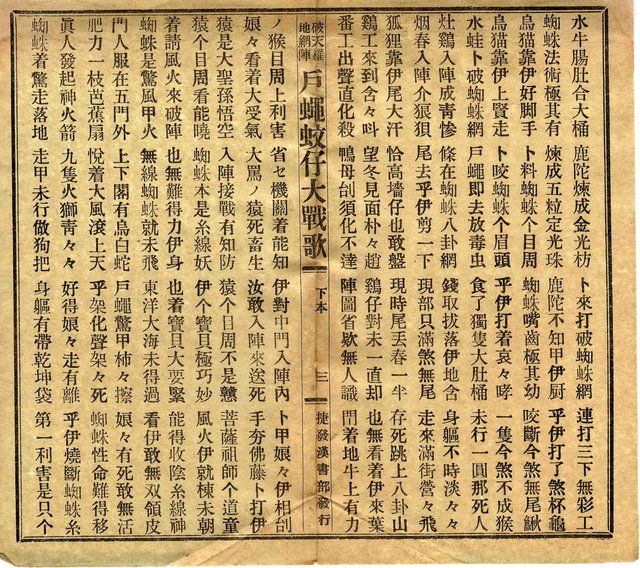 水牛腸肚合大桶 鹿陀煉成金光枋 卜來打破蜘蛛網 連打三下無彩工
蜘蛛法術極其有 煉成五粒定光珠 鹿陀不知甲伊厨 乎伊打了煞杯龜
鳥猫靠伊好脚手 卜料蜘蛛个目周 蜘蛛嘴齒極其幼 咬斷今煞無尾鰍
鳥猫靠伊上賢走 卜咬蜘蛛个眉頭 乎伊打着哀々哮 一隻今煞不成猴
水蛙卜破蜘蛛網 戶蠅即去放毒虫 食了獨隻大肚桶 未行一圓那死人
灶鷄入陣成靑慘 條在蜘蛛八卦網 錢取拔落伊地含 身軀不時淡々々
烟春入陣介狼狽 尾去乎伊剪一下 現部只滿煞無尾 走來滿街營々飛
狐狸靠伊尾大汗 恰高墻仔也敢盤 現時尾丟春一半 存死跳上八卦山
鷄工來到含々叫 望冬見面朴々趙 鷄仔對未一直却 也無看着伊來葉
番工出聲直化殺 鴨母刣須化不達 陣圖省欵無人識 鬥着地牛上有力
破天羅地網陣 戶蠅蚊仔大戰歌 下本 三 捷發漢書部發行
ノ猴目周上利害 省セ機關着能知 伊對中門入陣內 卜甲娘々伊相刣
娘々看着大受氣 大罵ノ猿死畜生 汝敢入陣來送死 手夯佛藤卜打伊
猿是大聖孫悟空 入陣接戰有知防 猿个目周不是戇 菩薩祖師个道童
猿个目周看能曉 蜘蛛本是糸線妖 伊个寶貝極巧妙 風火伊就棟未朝
着請風火來破陣 也無難得力伊身 也着寶貝大要緊 能得收陰糸線神
蜘蛛是驚風甲火 無線蜘蛛就未飛 東洋大海未得過 看伊敢無双領皮
門人服在五門外 上下閣有鳥白蛇 戶蠅驚甲柿々擦 娘々有死敢無活
肥力一枝芭蕉扇 悅着大風滾上天 乎架化聲架々死 蜘蛛性命難得移
眞人發起神火箭 九隻火獅靑々々 好得娘々走有離 乎伊燒斷蜘蛛糸
蜘蛛着驚走落地 走甲未行做狗把 身軀有帶乾坤袋 第一利害是只个